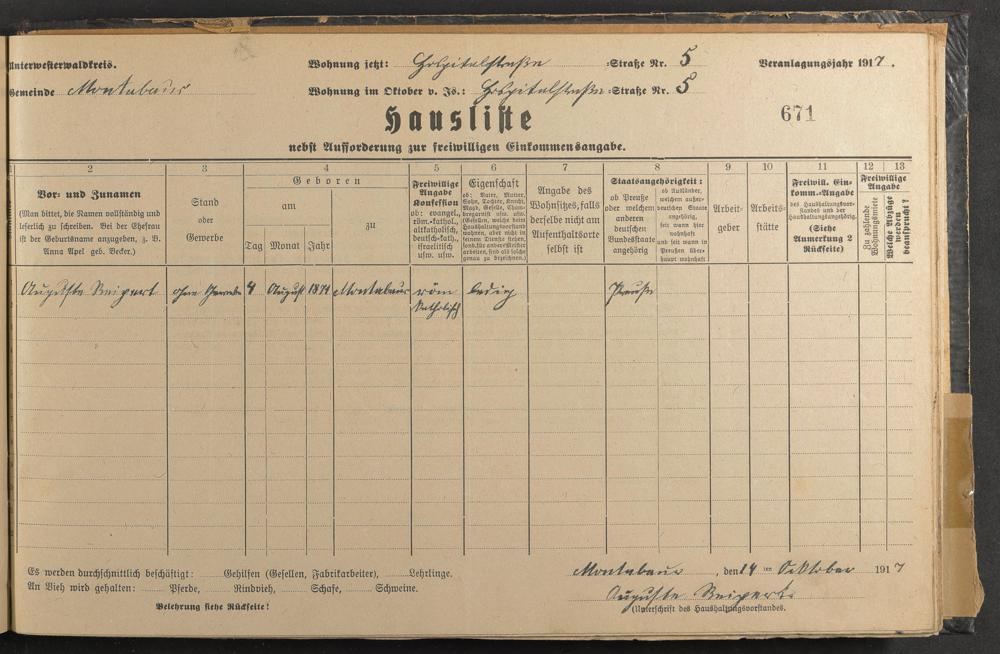 Unterwesterwaldkreis. Wohnung jetzt: Hospitalstraße -Straße Nr. 5 Veranlagungsjahr 1917.
Gemeinde Montabaur Wohnung im Oktober v. Js.: Hospitalstraße -Straße Nr. 5
Hausliste 671
nebst Aufforderung zur freiwilligen Einkommensangabe.
2 3 4 5 6 7 8 9 10 11 12 13
Vor- und Zunamen
(Man bittet, die Namen vollständig und
leserlich zu schreiben. Bei der Ehefrau
ist der Geburtsname anzugeben, z. B.
Anna Apel geb. Becker.)
Stand
oder
Gewerbe
Geboren
am
zu
Tag Monat Jahr
Freiwillige
Angabe
Konfession
ob: evangel.,
röm.-kathol.,
altkatholisch,
deutsch-kath.,
israelitisch
usw. usw.
Eigenschaft
ob: Vater, Mutter,
Sohn, Tochter, Knecht,
Magd, Geselle, Cham-
bregarnist usw. usw.
(Gesellen, welche beim
Haushaltungsvorstand
wohnen, aber nicht in
seinem Dienste stehen,
sond. für andere Meister
arbeiten, sind als solche
genau zu bezeichnen.)
Angabe des
Wohnsitzes, falls
derselbe nicht am
Aufenthaltsorte
selbst ist
Staatsangehörigkeit:
ob Preuße
oder welchem
anderen
deutschen
Bundesstaate
angehörig
ob Ausländer,
welchem außer-
deutschen Staate
angehörig,
seit wann hier
wohnhaft
und seit wann in
Preußen über-
haupt wohnhaft
Arbeit-
geber
Arbeits-
stätte
Freiwill. Ein-
komm.-Angabe
des Haushaltungsvor-
standes und der
Haushaltungsangehörig.
(Siehe
Anmerkung 2
Rückseite)
Freiwillige
Angabe
Zu zahlende
Wohnungsmiete
Welche Abzüge
werden
beansprucht?
Auguste Reipert ohne Gewerbe 4 August 1871 Montabaur röm ledig Preuße
katholisch
Es werden durchschnittlich beschäftigt: Gehilfen (Gesellen, Fabrikarbeiter), Lehrlinge.
An Vieh wird gehalten: Pferde, Rindvieh, Schafe, Schweine.
Belehrung siehe Rückseite!
Montabaur, den 14 ten Oktober 1917
Auguste Reipert
(Unterschrift des Haushaltungsvorstandes.